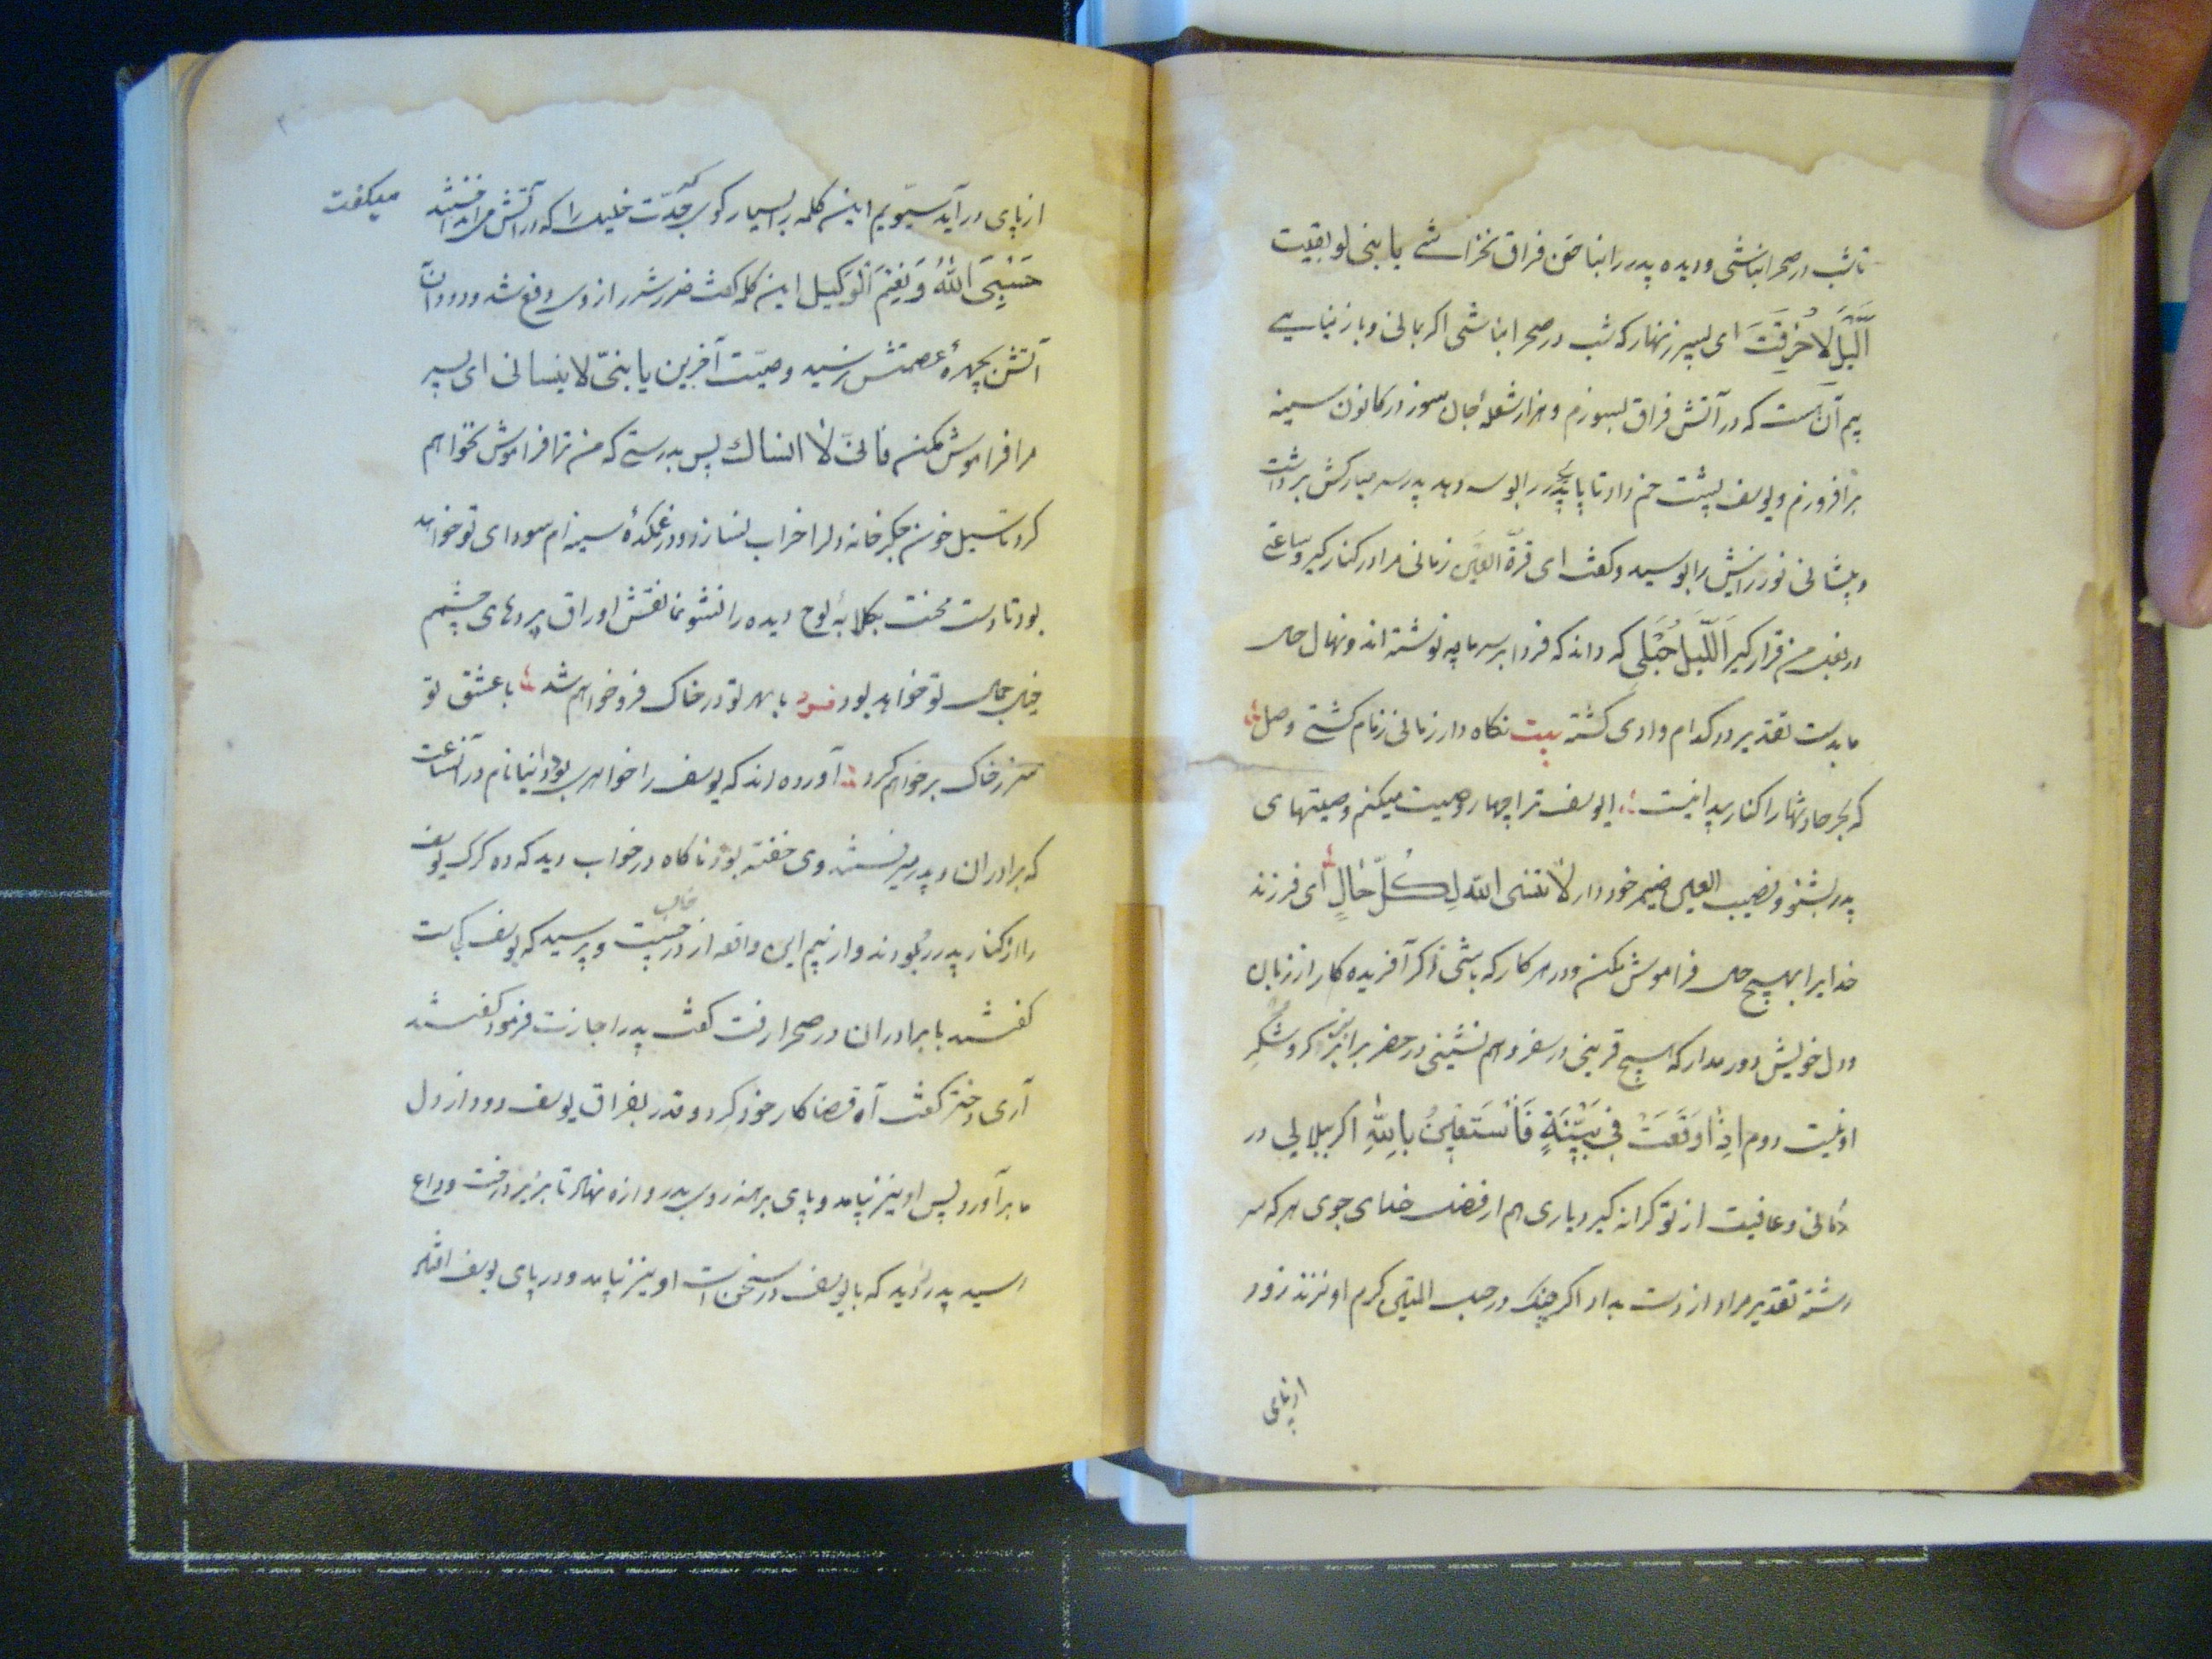 تا شب در صحرا نباشی و دیده پدر را بناخن فراق نخراشی یا بنی لو بقیت
اللیل لا حرقت ای پسر زنهار که شب در صحرا نباشی اگر بمانی و باز نیایی
بیم آنست که در آتش فراق بسوزم و هزار شعلهٔ جان سوز در کانون سینه
برافروزم و یوسف پشت خم داد تا پای پدر را بوسه دهد پدر سر مبارکش برداشت
و پیشانی نورانیش را بوسید و گفت ای قرة العین زمانی مرا در کنار گیر و ساعتی
در بغل من قرار گیر اللیل حبلی که داند که فردا بر سر ما چه نوشته اند و نهال حال
ما بدست تقدیر در کدام وادی کشته بیت نگاه دار زمانی زمام کشتی وصل
که بحر حادثها را کنار پیدا نیست ای یوسف ترا چهار وصیت میکنم وصیتهای
پدر بشنو و نصیب العین ضمیر خود دار لا تنسی الله لکل حال ای فرزند
خدایرا بهیچ حال فراموش مکن و در هر کار که باشی ذکر آفریده کار از زبان
و دل خویش دور مدار که هیچ قرینی در سفر و هم نشینی در حضر برابر ذکر و شکر
او نیست دوم اذا وقعت فی بلیة فاستعن بالله اگر ببلایی در
مانی و عافیت از تو کرانه گیرد یاری هم از فضل خدای جوی هر که سر
رشته تقدیر مراد از دست بداد اگر چنگ در حبل المتین کرم او نزند زود
از پای
از پای در آید سیوم این کلمه را بسیار گوی که جدت خلیل را که در آتش می انداختند میگفت
حسبی الله و نعم الوکیل این کلمه گفت ضرر شرر از وی دفع شد و دود آن
آتش بچهرهٔ عصمتش نرسید وصیت آخرین یا بنی لا ینسانی ای پسر
مرا فراموش مکن فانی لا انساك پس بدرستی که من ترا فراموش نخواهم
کرد تا سیل خون جگر خانه دلرا خراب نسازد و در غمکدهٔ سینه ام سودای تو خواهد
بود تا دست محنت بگلابهٔ لوح دیده را نشوید نقش اوراق پردهای چشم
خیال جمال تو خواهد بود فرد با مهر تو در خاک فرو خواهم شد با عشق تو
سر ز خاک بر خواهم کرد آورده اند که یوسف را خواهری بود دنیا نام در آنساعت
که برادران و پدر میرفتند وی خفته بود ناگاه در خواب دید که ده گرگ یوسف
را از کنار پدر ربودند و از بیم این واقعه از خواب در جست و پرسید که یوسف کجاست
گفتند با برادران در صحرا رفت گفت پدر اجازت فرمود گفتند
آری دختر گفت آه قضا کار خود کرد و قدر بفراق یوسف دود از دل
ما برآورد پس او نیز بیامد و پای برهنه روی بدروازه نهاد تا بزیر درخت وداع
رسید پدر را دید که با یوسف در سخن است او نیز بیامد و در پای یوسف افتاد